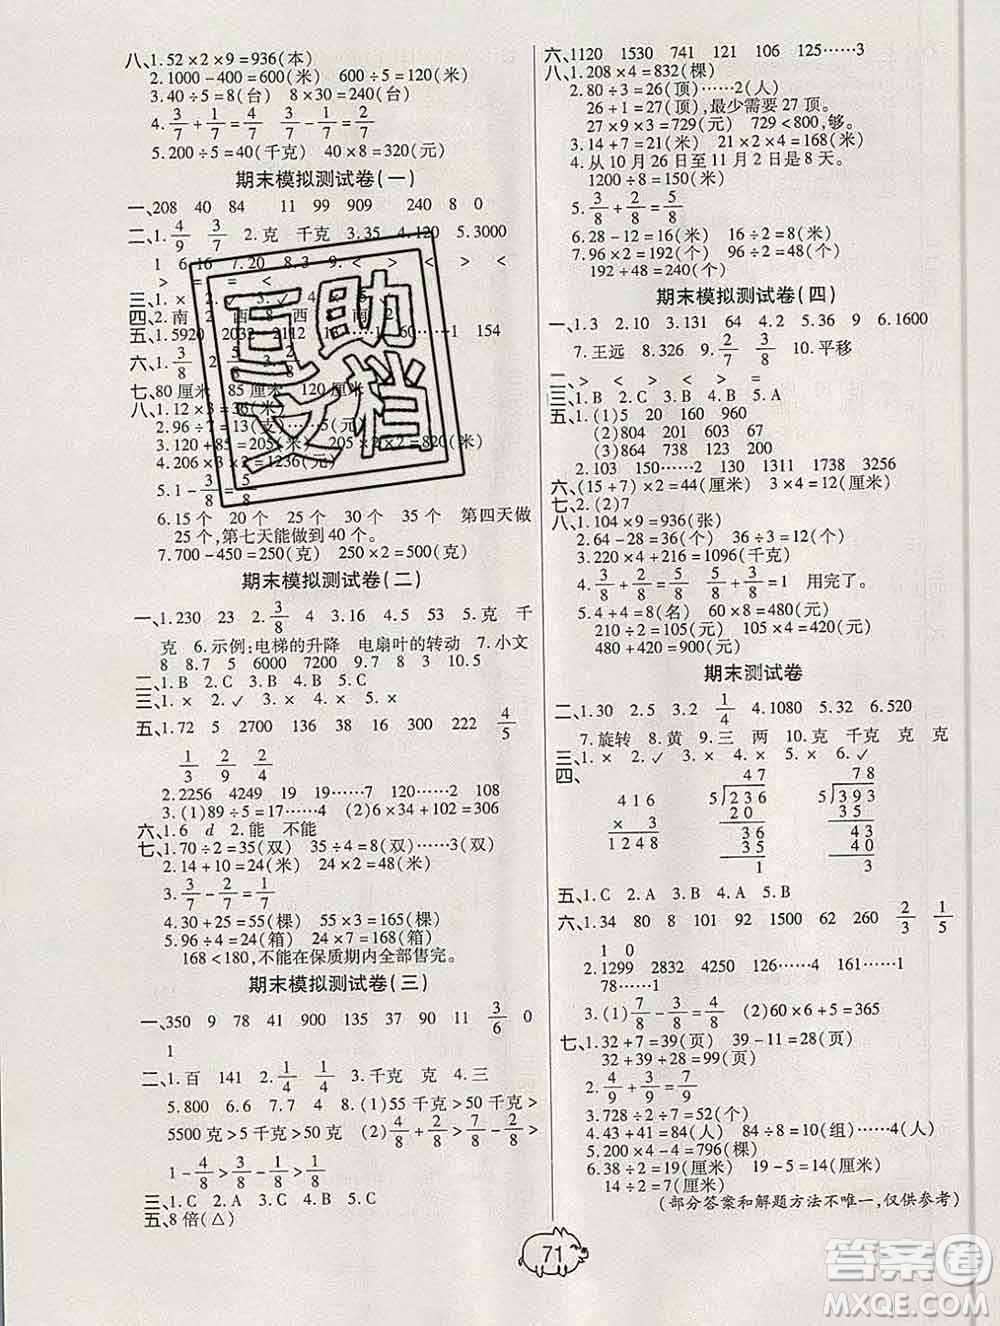 八、1.52×2×9=936(本)
2.1000-400=600(米) 600÷5=120(米)
3.40÷5=8(台) 8×30=240(台)
4. 3/7 + 1/7 = 4/7
5.200÷5=40(千克) 40×8=320(元)
期末模拟测试卷(一)
一、208 40 84 11 99 909 240 8 0
二、1. 4/9 3/7 2.克 千克 3.35 4.120 5.3000
1 6.16 7.20 8.3 9.< > < > <
三、1.×
四、2.南
五、1.5920 2032 2112 60……1 154
六、1. 3/8
七、80厘米 85厘米 120厘米
八、1.12×3=36(米)
2.96÷7=13(支)……5(元)
3.120+85=205(米) 205×2×2=820(米)
4.206×3×2=1236(元)
5.1- 3/8 = 5/8
6.15个 20个 25个 30个 35个 第四天做
25个,第七天能做到40个。
7.700-450=250(克) 250×2=500(克)
期末模拟测试卷(二)
一、1.230 23 2. 3/8 4 3.16 4.5 53 5.克 千
克 6.示例:电梯的升降 电扇叶的转动 7.小文
8 8.7 5 6000 7200 9.8 3 10.5
二、1.B 2.C 3.B 4.B 5.C
三、1.× 2.✓ 3.× 4.× 5.×
五、1.72 5 2700 136 38 16 300 222 4/5
1/3 2/9 2/4
2.2256 4249 19 19……7 120 120……7
3.(1)89÷5=17……4 (2)6×34+102=306
六、1.6 d 2.能 不能
七、1.70÷2=35(双) 35÷4=8(双)……3(双)
2.14+10=24(米) 24×2=48(米)
3. 3/7 - 2/7 = 1/7
4.30+25=55(棵) 55×3=165(棵)
5.96÷4=24(箱) 24×7=168(箱)
168<180,不能在保质期内全部售完。
期末模拟测试卷(三)
一、350 9 78 41 900 135 37 90 11 3/6 0
1
二、1.百 141 2. 1/4 1/4 3.千克 克 4.三
5.800 6.6 7.7 4 8.(1)55千克>50千克>
5500克>5千克>50克 (2) 4/8 + 2/8 > 7/8 - 2/8 >
1- 4/8 > 3/8 - 1/8
三、1.C 2.A 3.C 4.A 5.C
五、8倍(△)
六、1120 1530 741 121 106 125……3
八、1.208×4=832(棵)
2.80÷3=26(顶)……2(人)
26+1=27(顶),最少需要27顶。
27×9×3=729(元) 729<800,够。
3.14+7=21(米) 21×2×4=168(米)
4.从10月26日至11月2日是8天。
1200÷8=150(米)
5. 3/8 + 2/8 = 5/8
6.28-12=16(米) 16÷2=8(米)
7.96×2=192(个) 96÷2=48(个)
192+48=240(个)
期末模拟测试卷(四)
一、1.3 2.10 3.131 64 4.2 5.36 9 6.1600
7.王远 8.326 9. 2/7 3/8 10.平移
二、> < > > > =
三、1.B 2.C 3.B 4.B 5.A
五、1.(1)5 20 160 960
(2)804 201 603 67
(3)864 738 123 984
2.103 150……2 130 1311 1738 3256
六、(15+7)×2=44(厘米) 3×4=12(厘米)
七、2.(2)7
八、1.104×9=936(张)
2.64-28=36(个) 36÷3=12(个)
3.220×4+216=1096(千克)
4. 3/8 + 2/8 = 5/8 5/8 + 3/8 =1 用完了。
5.4+4=8(名) 60×8=480(元)
210÷2=105(元) 8×105=840(元)
6.120÷2=60(元) 60×2+120=240(元)
420+480=900(元)
期末测试卷
二、1.30 2.5 3.2 1/4 4.1080 5.32 6.520
7.旋转 8.黄 9.三 两 10.克 千克 克 克
三、1.× 2.✓ 3.× 4.× 5.× 6.✓
四、 47 78
416 5)236 5)393
× 3 20 35
1248 36 43
35 40
1 3
五、1.C 2.A 3.B 4.A 5.B
六、1.34 80 8 101 92 1500 62 260 2/3 1/5
1 0
2.1299 2832 4250 126……5 114……2 161……1
78……1
3.(1) 7/8 - 3/8 = 4/8 (2)60×6+5=365
七、1.32+7=39(页) 39-11=28(页)
32+39+28=99(页)
2. 4/9 + 3/9 = 7/9
3.728÷2÷7=52(个)
4.43+41=84(人) 84÷8=10(组)……4(人)
5.200×4-4=796(棵)
6.38÷2=19(厘米) 19-5=14(厘米)
14÷2=7(厘米)
(部分答案和解题方法不唯一,仅供参考)
71
互助文档
答案圈
MXQE.COM